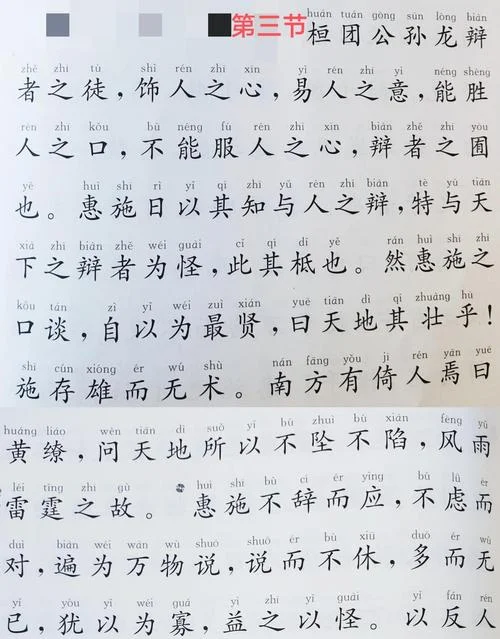 huán tuán gōng sūn lóng biàn
第三节 桓团公孙龙辩
zhě zhī tú shì rén zhī xīn yì rén zhī yì néng shèng
者之徒，饰人之心，易人之意，能胜
rén zhī kǒu bù néng fú rén zhī xīn biàn zhě zhī yòu
人之口，不能服人之心，辩者之囿
yě huì shī rì yǐ qí zhī yǔ rén zhī biàn tè yǔ tiān
也。惠施日以其知与人之辩，特与天
xià zhī biàn zhě wéi guài cǐ qí dǐ yě rán huì shī zhī
下之辩者为怪，此其柢也。然惠施之
kǒu tán zì yǐ wéi zuì xián yuē tiān dì qí zhuàng hū
口谈，自以为最贤，曰天地其壮乎！
shī cún xióng ér wú shù nán fāng yǒu jī rén yān yuē
施存雄而无术。南方有倚人焉曰
huáng liáo wèn tiān dì suǒ yǐ bù zhuì bù xiàn fēng yǔ
黄缭，问天地所以不坠不陷，风雨
léi tíng zhī gù huì shī bù cí ér yìng bù lǜ ér
雷霆之故。惠施不辞而应，不虑而
duì biàn wéi wàn wù shuō shuō ér bù xiū duō ér wú
对，遍为万物说，说而不休，多而无
yǐ yóu yǐ wéi guǎ yì zhī yǐ guài yǐ fǎn rén
已，犹以为寡，益之以怪。以反人